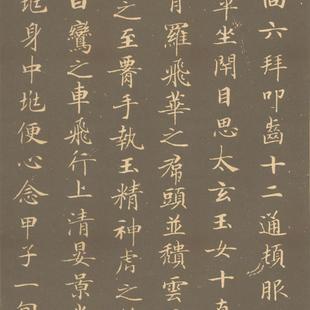 向六拜叩齒十二通頓服
坐閉目思太玄玉女十
羅飛華之帬頭並積雲
之至手執玉精神虎之
白鸞之車飛行上清晏景
地身中地便心念甲子一旬